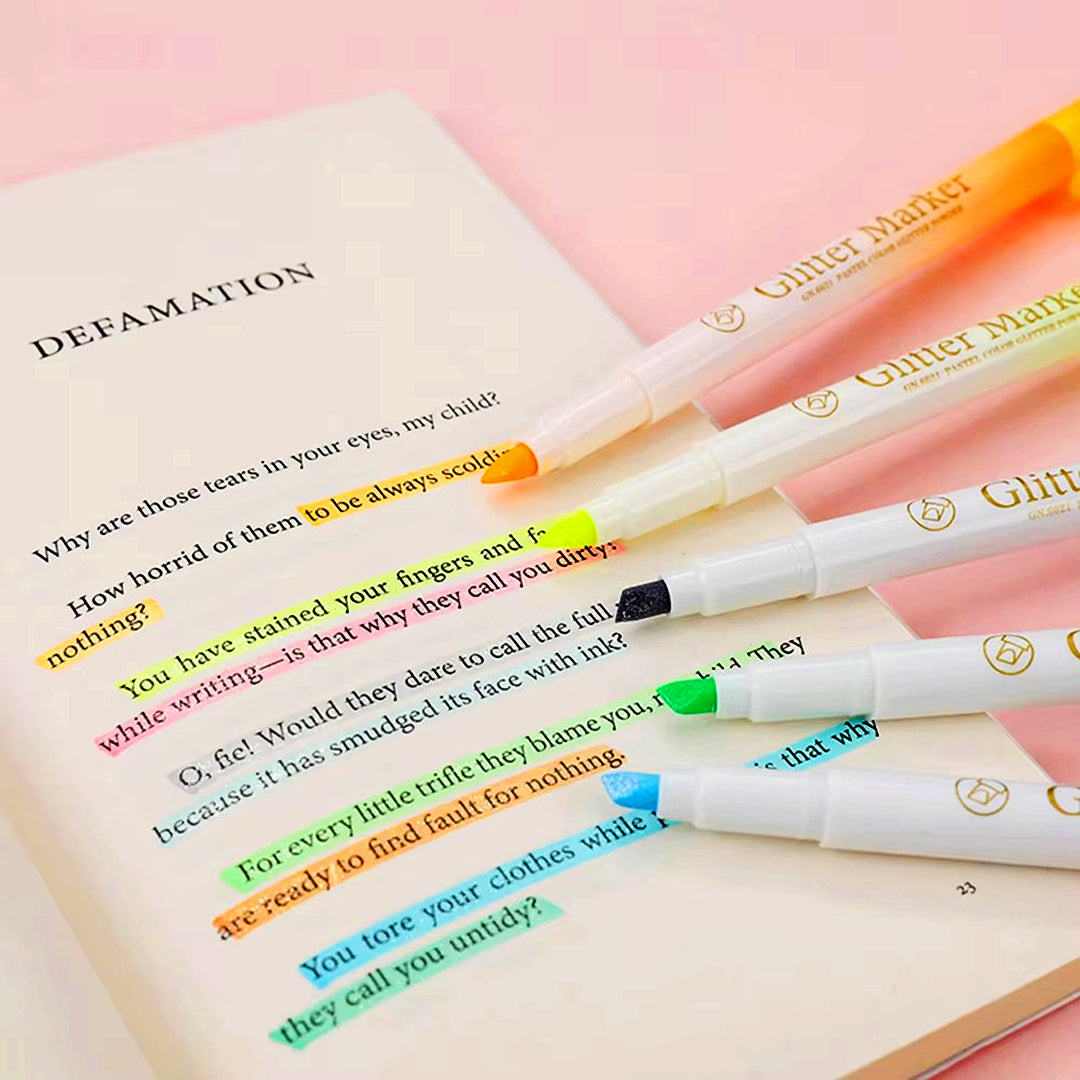 DEFAMATION
Why are those tears in your eyes, my child?
How horrid of them to be always scoldin
nothing?
You have stained your fingers and fa
while writing—is that why they call you dirty?
O, fie! Would they dare to call the full
because it has smudged its face with ink?
For every little trifle they blame you, child. They
are ready to find fault for nothing.
You tore your clothes while is that why
they call you untidy?
23
Glitter Marker
GN.6021 PASTEL COLOR GLITTER POWDER
Glitter Marke
GN.6021 PASTEL COLOR GLITTER POW
Glitt
GN.6021
G
G